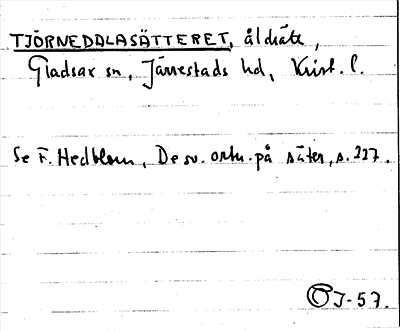 TJÖRNEDALASÄTTERET, åldsäte,
Gladsax sn, Järrestads hd, Krist. l.
Se F. Hedblom, De sv. ortn. på säter, s. 227.
OJ-57.